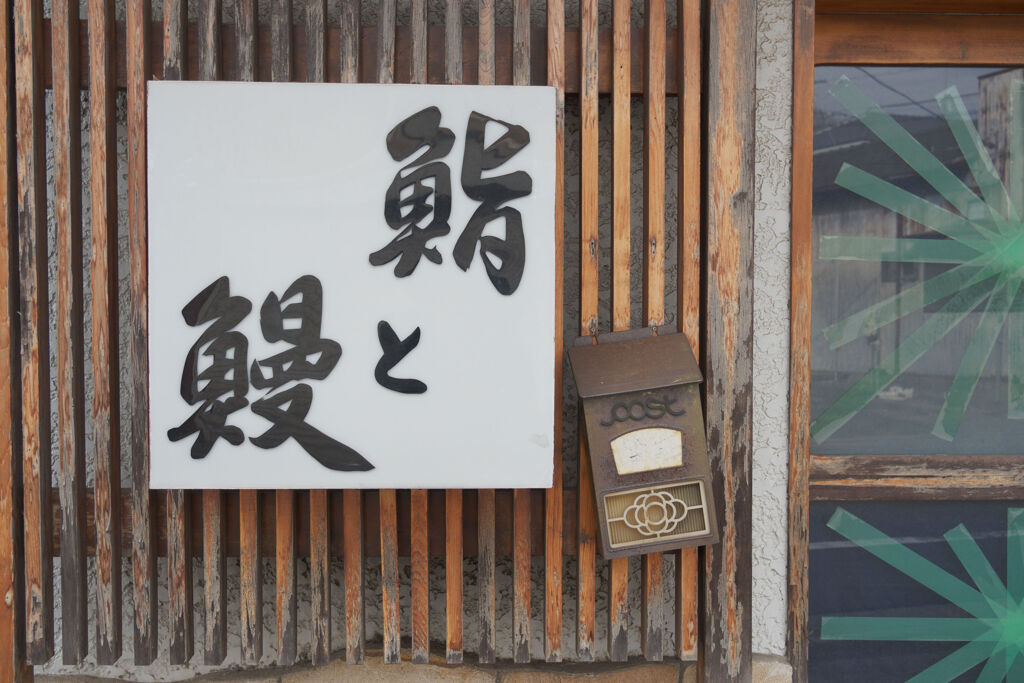 鮨
と
鰻
post